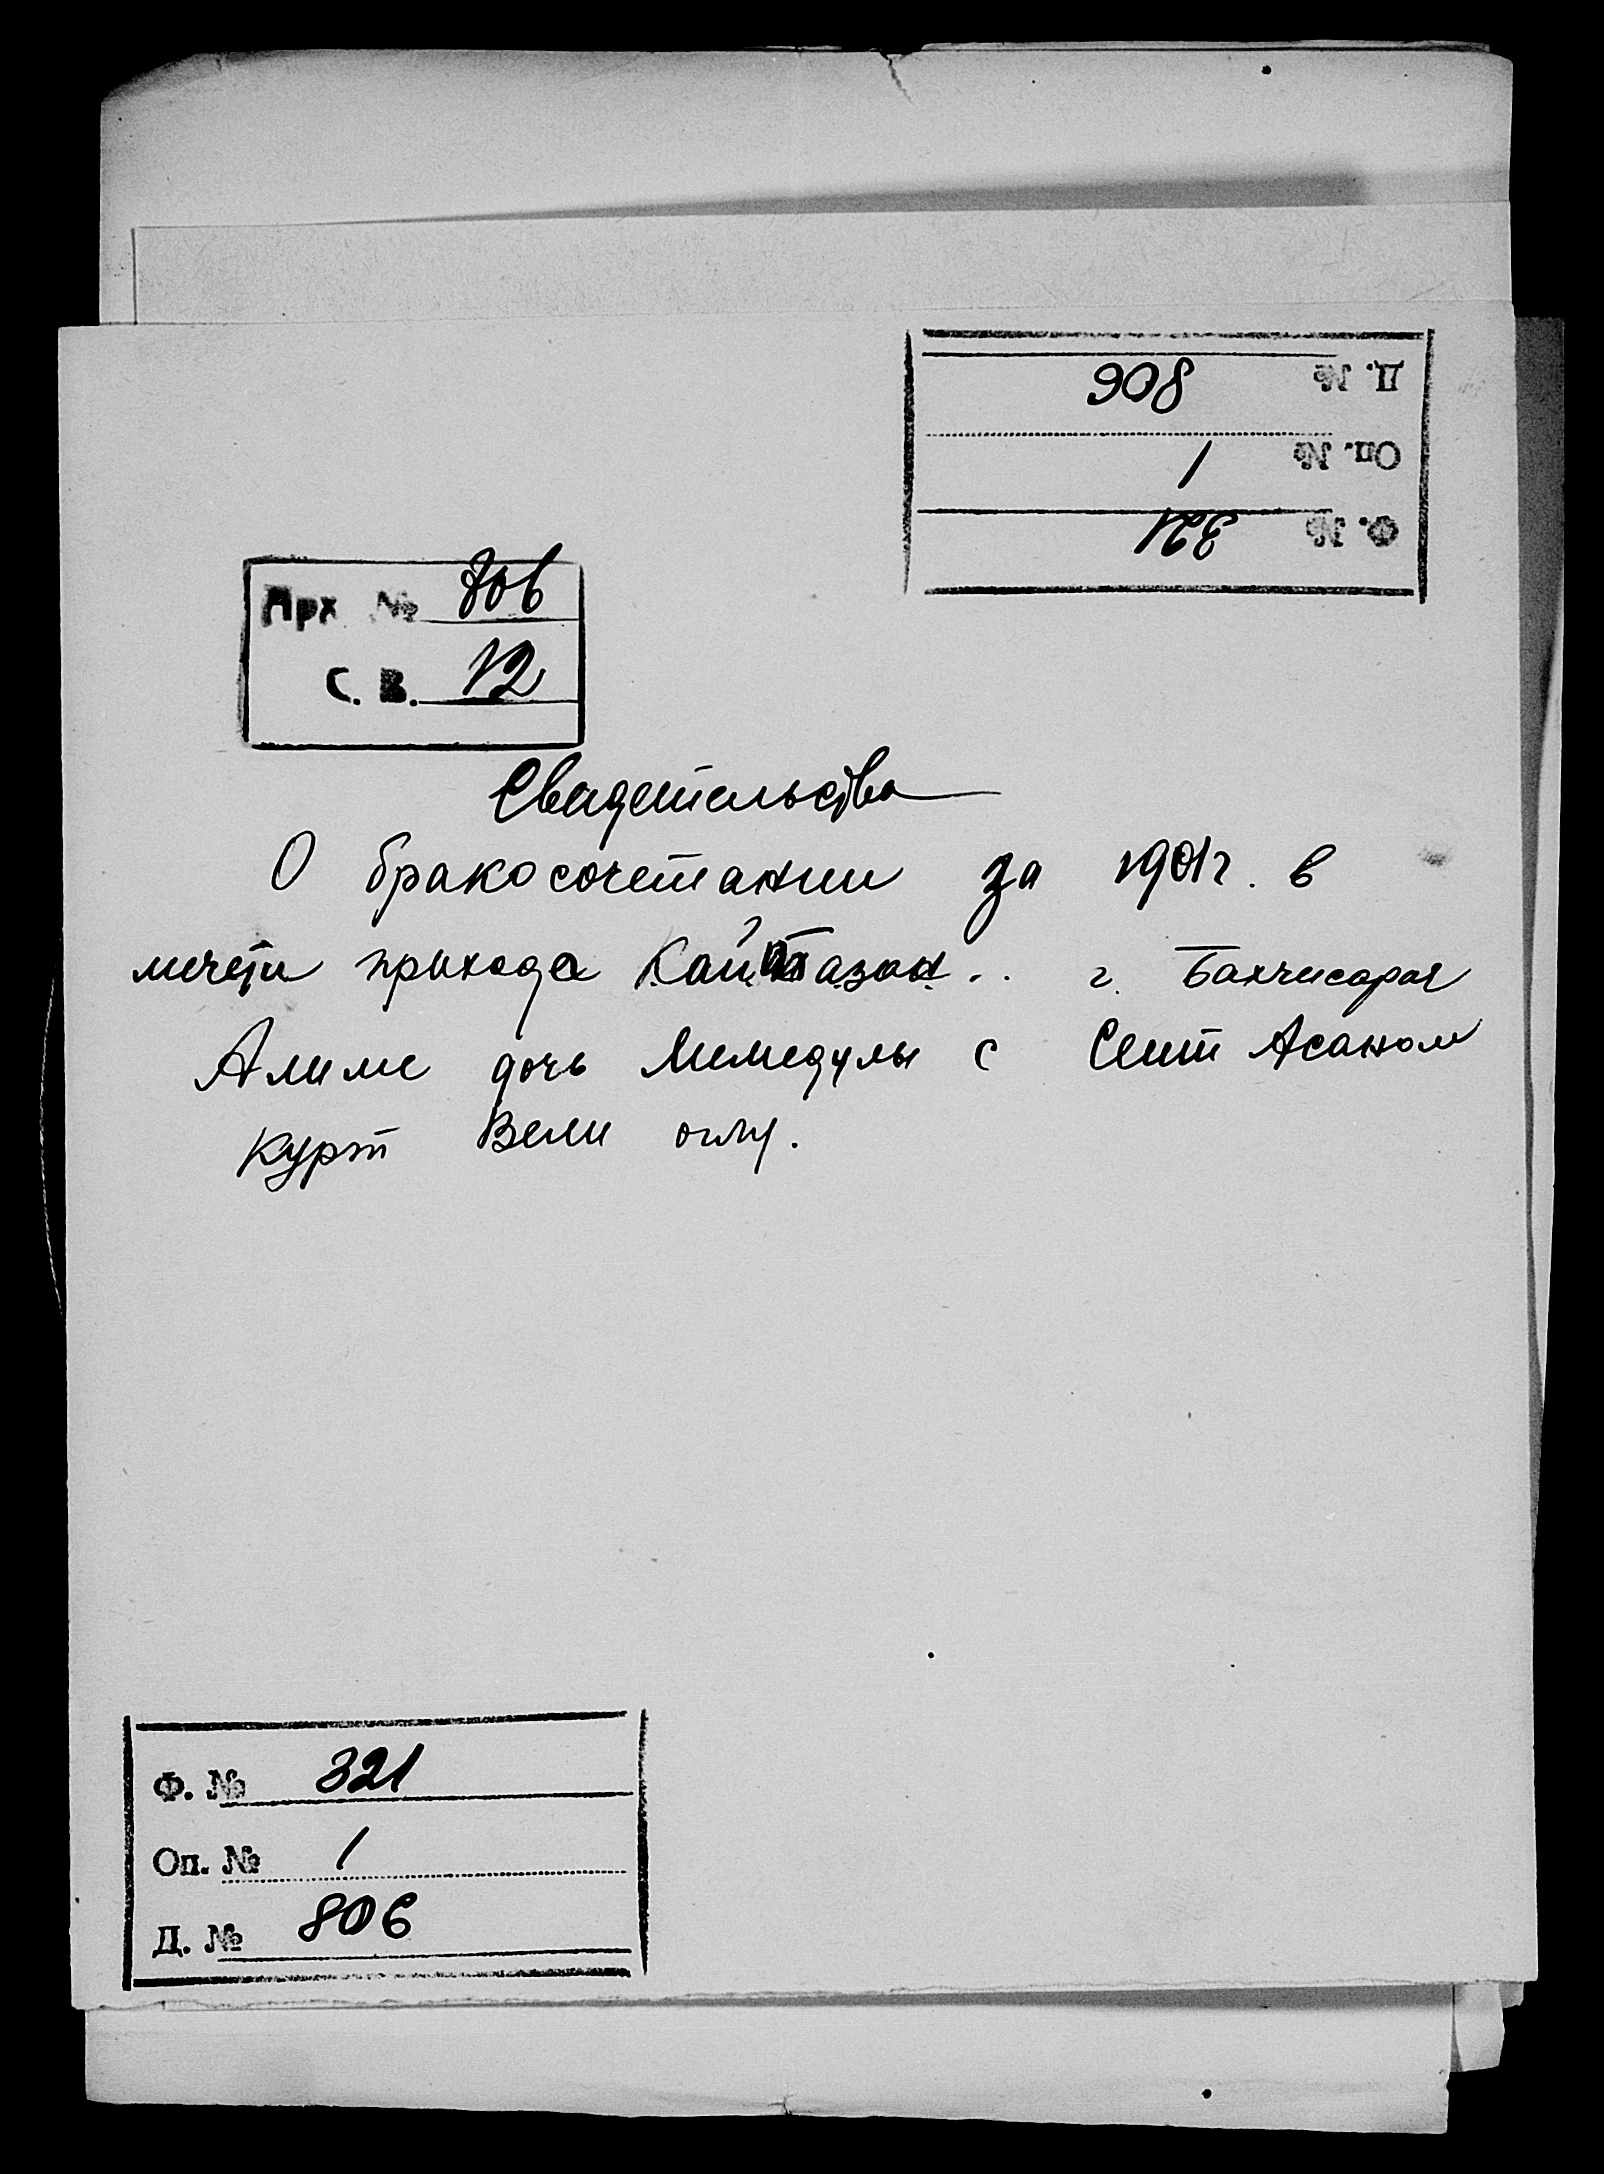 Д. № 806
Оп. № 1
Ф. № 321
Арх № 806
С. В. 12
Свидетельства
О бракосочетании за 1901 г. в
мечети прихода г. Бахчисарая
Алиме дочь Мемедулы с Сеит Асаном
Курт Вели оглу.
Ф. № 321
Оп. № 1
Д. № 806